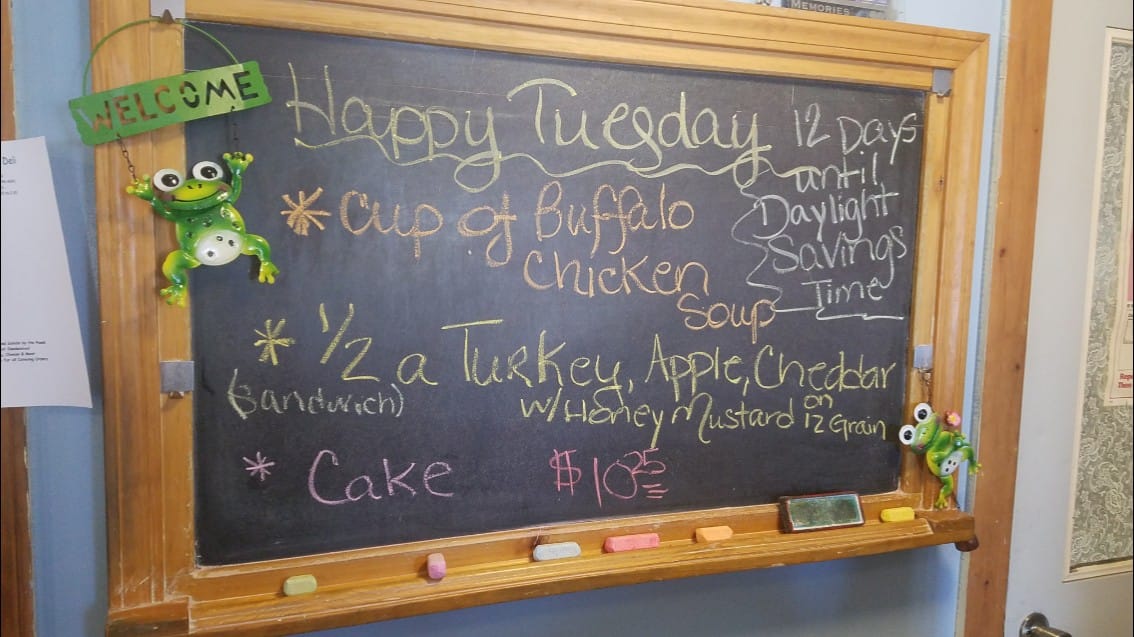 MEMORIES
WELCOME
Deli
Happy Tuesday
12 Days
until
Daylight
Savings
Time
* Cup of Buffalo
Chicken
Soup
* 1/2 a Turkey, Apple, Cheddar
(sandwich) w/Honey Mustard on 12 Grain
* Cake $10.25